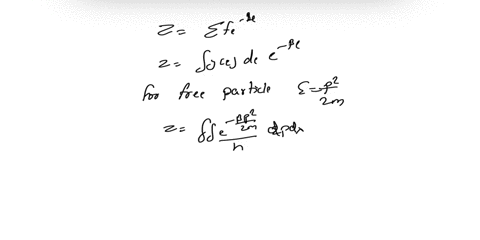 Z = Σ f e^{-βε}
Z = ∫ g(ε) dε e^{-βε}
For free particle ε = p²/2m
Z = ∫∫ e^{-βp²/2m} / h dp dx